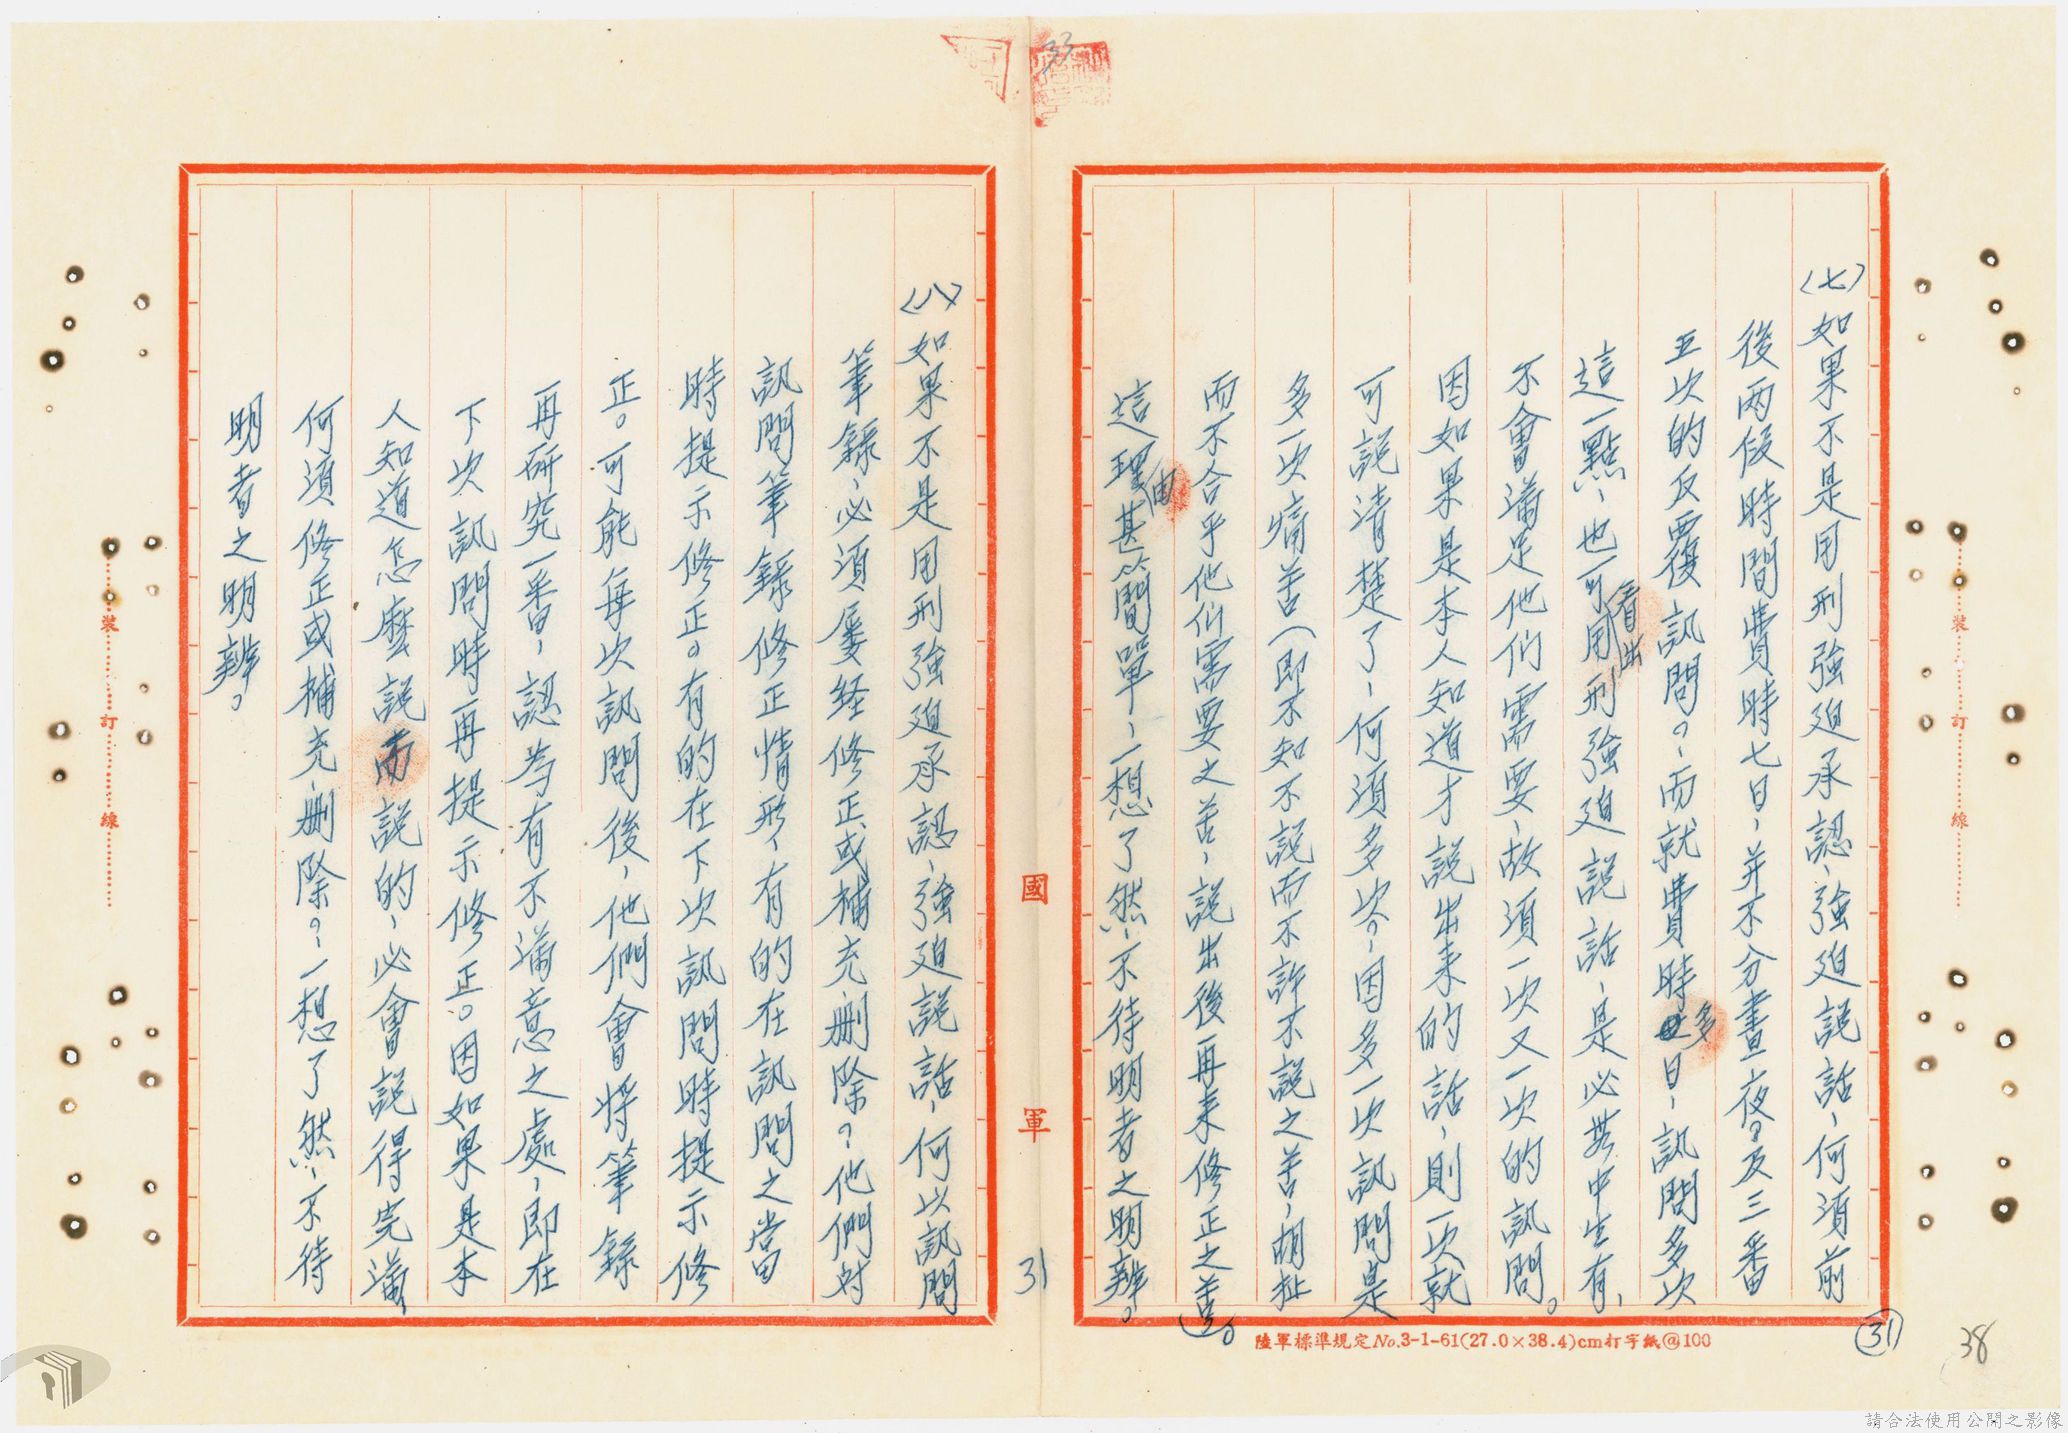 33
(七)如果不是用刑強迫承認、強迫說話、何須前
後兩假時間費時七日、并不分晝夜?及三番
五次的反覆訊問?、而就費時多日、訊問多次
這一點、也可看出用刑強迫說話、是必無中生有、
不會滿足他們需要、故須一次又一次的訊問。
因如果是本人知道才說出来的話、則一次就
可說清楚了、何須多次?、因多一次訊問是
多一次痛苦(即不知不說而不許不說之苦、胡扯
而不合乎他们需要之苦、說出後再来修正之苦)。
這理由甚簡單、一想了然、不待明者之明辨。
31
陸軍標準規定No.3-1-61(27.0×38.4)cm打字紙@100
38
國軍
31
(八)如果不是用刑強迫承認、強迫說話、何以訊問
筆錄、必須屢经修正或補充、删除?他們对
訊問筆錄修正情形、有的在訊問之當
時提示修正。有的在下次訊問時提示修
正。可能每次訊問後、他們會將筆錄
再研究一番、認為有不滿意之處、即在
下次訊問時再提示修正。因如果是本
人知道怎麼說而說的、必會說得完滿、
何須修正或補充、删除?、一想了然、不待
明者之明辨。
裝訂線
裝訂線
請合法使用公開之影像